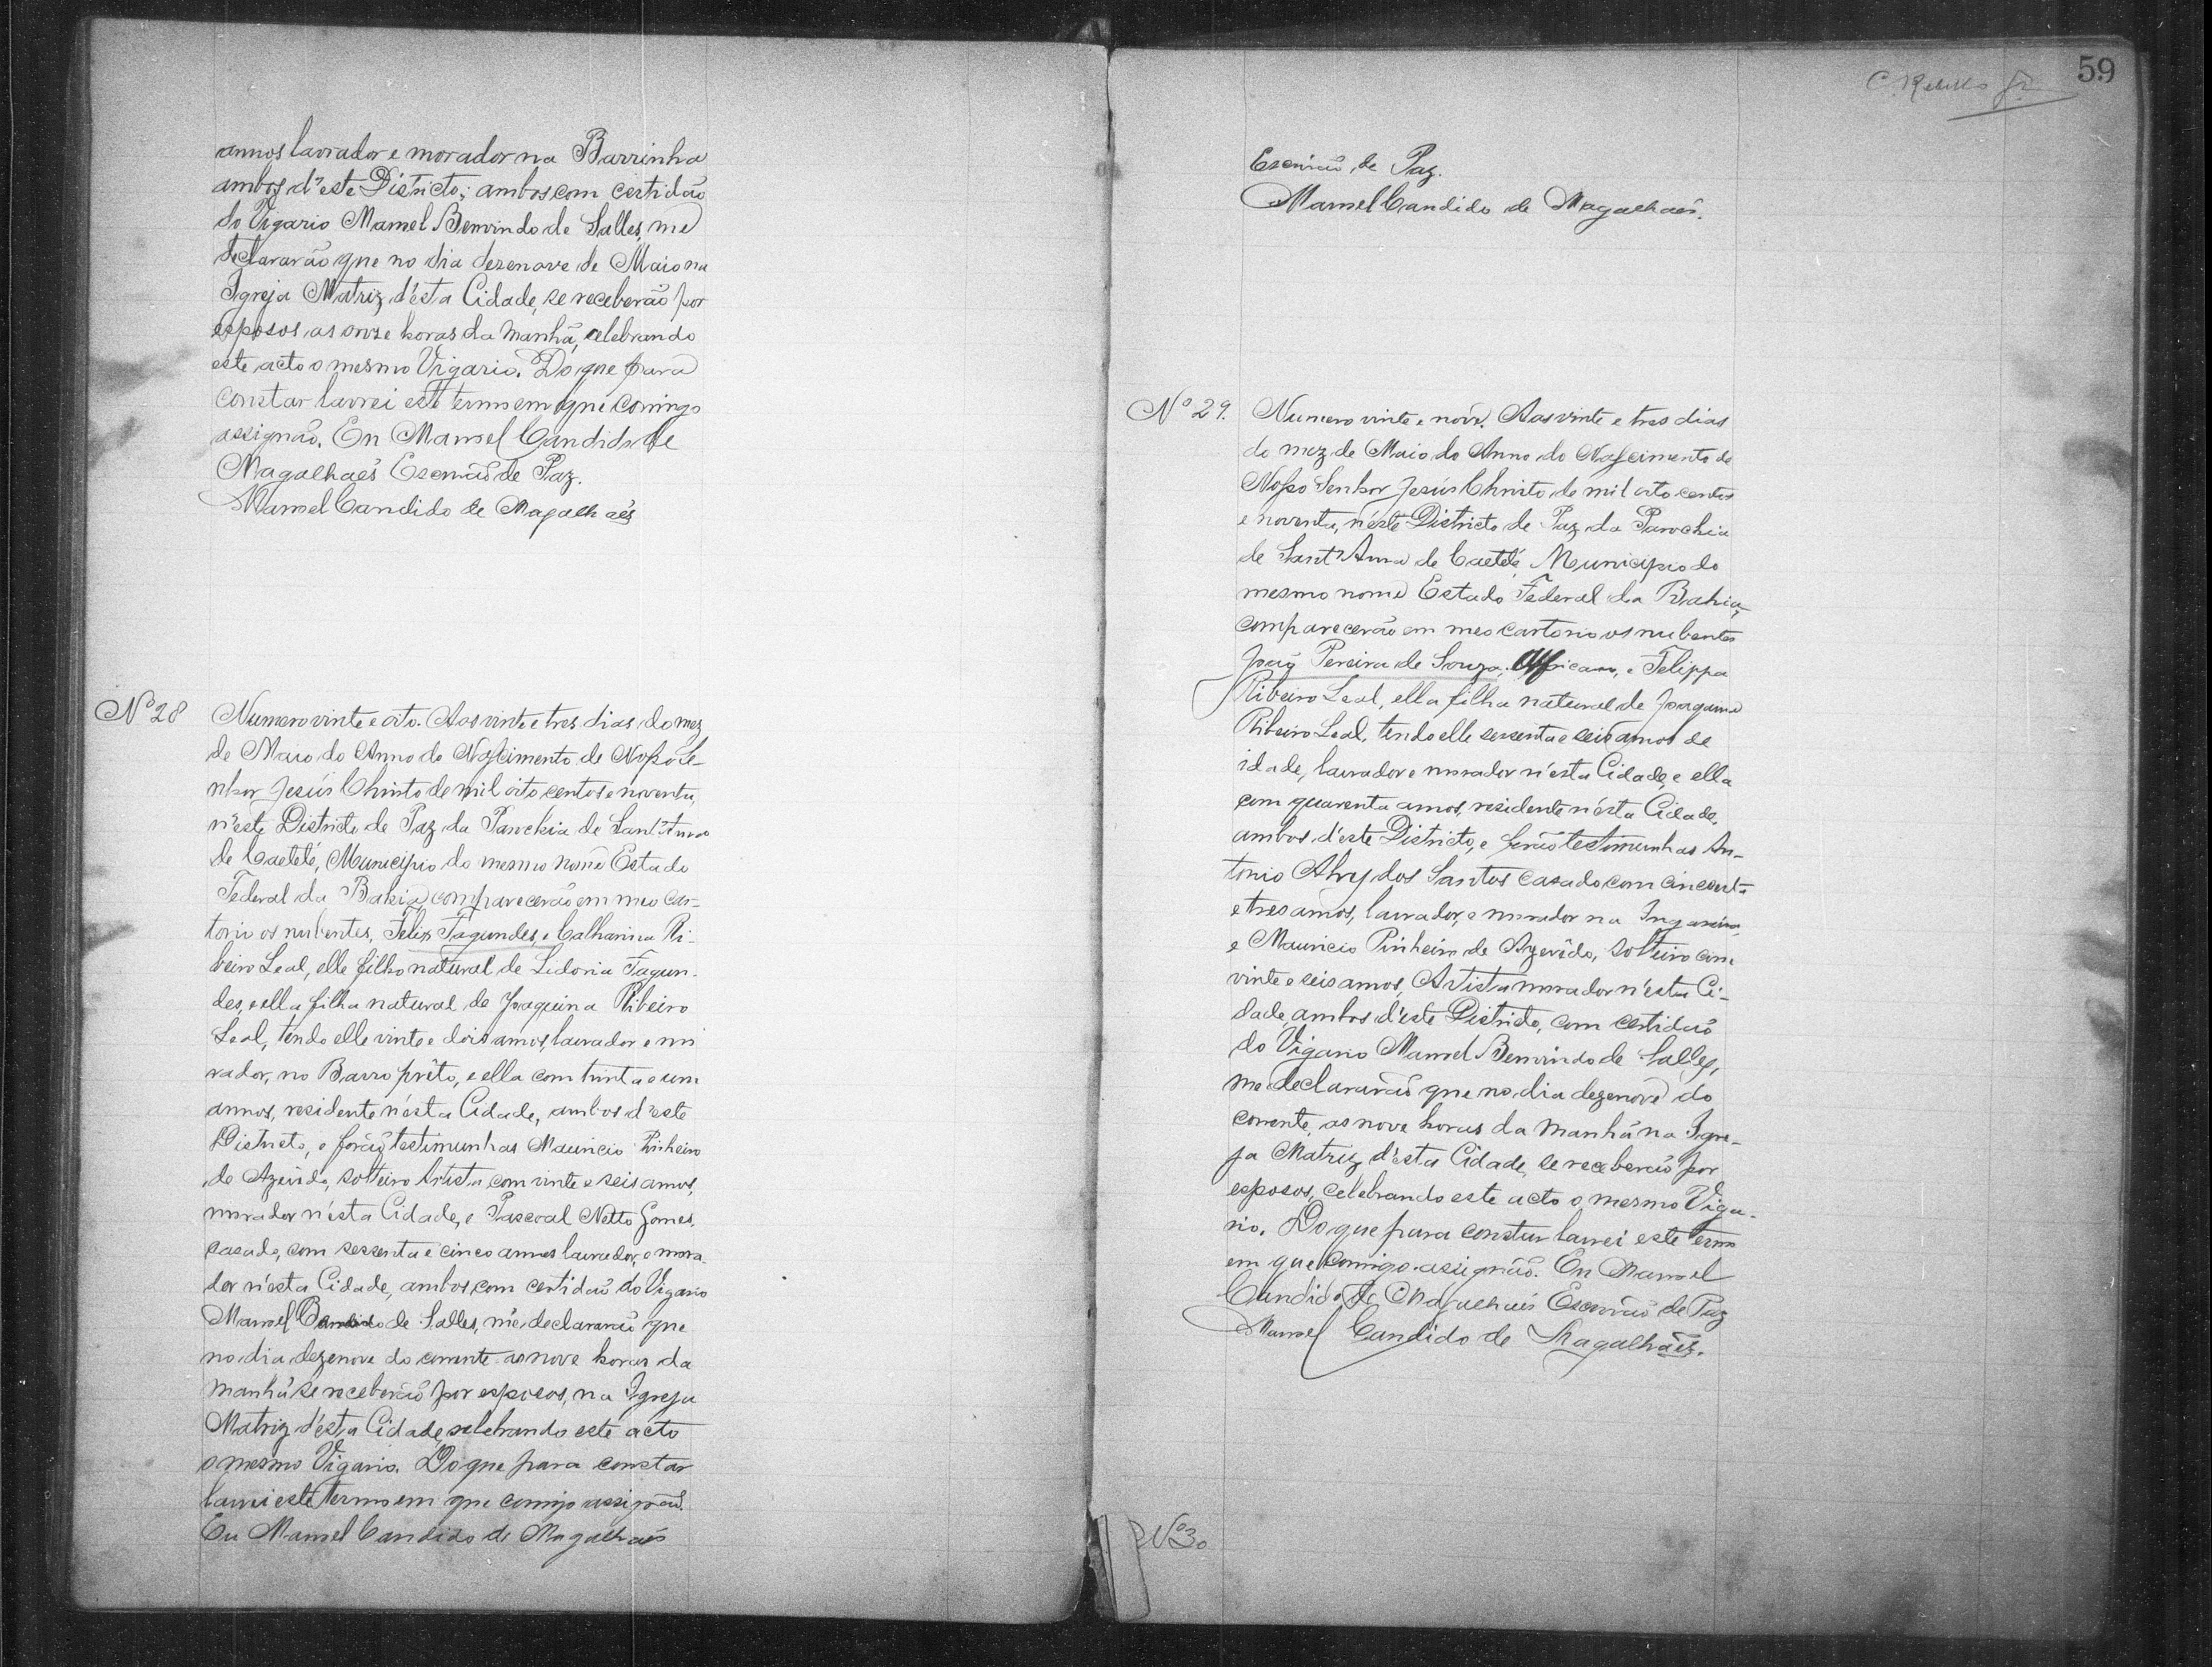 annos lavrador e morador na Barrinha
ambos d'este Districto; ambos com certidão
do Vigario Manoel Bemvindo de Salles, me
declararão que no dia dezenove de Maio na
Igreja Matriz d'esta Cidade, se receberão por
esposos as onze horas da manhã, celebrando
este acto o mesmo Vigario. Do que para
constar lavrei este termo em que comigo
assignão. Eu Manoel Candido de
Magalhães Escrivão de Paz.
Manoel Candido de Magalhães
Nº 28
Numero vinte e oito. Aos vinte e tres dias do mez
de Maio do Anno do Nascimento de Nosso Se-
nhor Jesús Christo de mil oito centos e noventa,
n'este Districto de Paz da Parochia de Sant'Anna
de Caeteté, Municipio do mesmo nome Estado
Federal da Bahia comparecerão em meu car-
torio os nubentes, Felix Fagundes, e Catharina Ri-
beiro Leal, elle filho natural de Lidoria Fagun-
des, e ella filha natural de Joaquina Ribeiro
Leal, tendo elle vinte e dois annos, lavrador e mo
rador, no Barro prêto, e ella com trinta e um
annos, residente n'esta Cidade, ambos d'este
Districto, e forão testimunhas Mauricio Pinheiro
de Azevêdo, solteiro Artista com vinte e seis annos,
morador n'esta Cidade, e Pascoal Netto Gomes,
casado, com sessenta e cinco annos lavrador, e mora-
dor n'esta Cidade, ambos com certidão do Vigario
Manoel de Salles, me declararão que
no dia dezenove do corrente as nove horas da
manhã se receberão por esposos, na Igreja
Matriz d'esta Cidade, celebrando este acto
o mesmo Vigario. Do que para constar
lavrei este termo em que comigo assignão.
Eu Manoel Candido de Magalhães
59
Escrivão de Paz.
Manoel Candido de Magalhães.
Nº 29.
Numero vinte e nove. Aos vinte e tres dias
do mez de Maio do Anno do Nascimento de
Nosso Senhor Jesús Christo de mil oito centos
e noventa, n'este Districto de Paz da Parochia
de Sant'Anna de Caeteté, Municipio do
mesmo nome Estado Federal da Bahia,
comparecerão em meo cartorio os nubentes
João Pereira de Souza, Africano, e Felippa
Ribeiro Leal, ella filha natural de Joaquina
Ribeiro Leal, tendo elle sessenta e seis annos de
idade, lavrador e morador n'esta Cidade, e ella
com quarenta annos, residente n'esta Cidade,
ambos d'este Districto, e forão testimunhas An-
tonio Alves dos Santos casado com cincoenta
e tres annos, lavrador, e morador na
e Mauricio Pinheiro de Azevêdo, solteiro com
vinte e seis annos, Artista morador n'esta Ci-
dade, ambos d'este Districto, com certidão
do Vigario Manoel Bemvindo de Salles,
me declararão que no dia dezenove do
corrente, as nove horas da manhã na Igre-
ja Matriz d'esta Cidade, se receberão por
esposos, celebrando este acto o mesmo Viga-
rio. Do que para constar lavrei este termo
em que comigo assignão. Eu Manoel
Candido de Magalhães Escrivão de Paz
Manoel Candido de Magalhães.
Nº 30